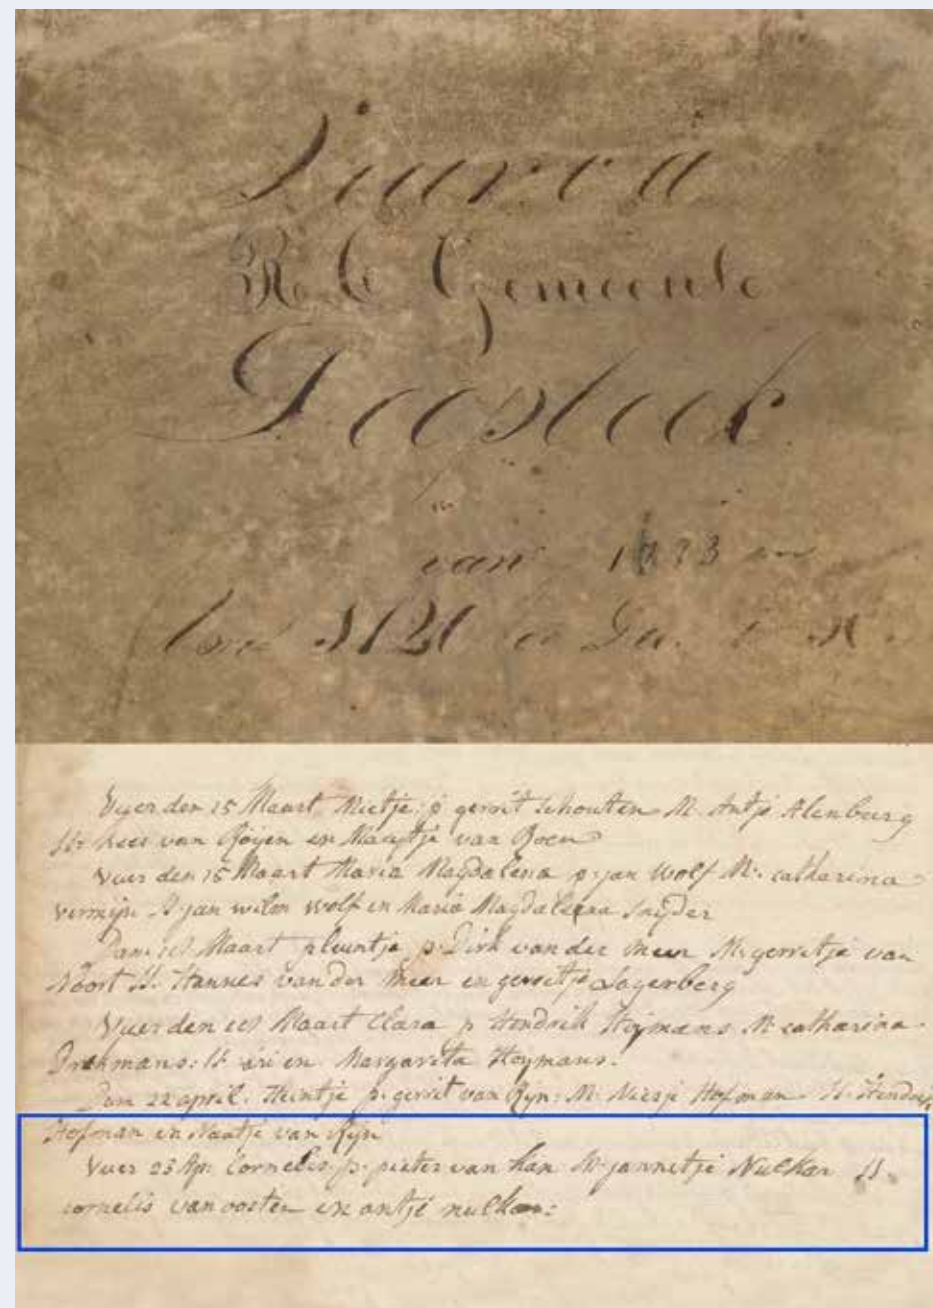 R C Gemeente
Doopboek
van
Vuer den 15 Maart Mietje: p gerrit Schouten M. Antje Alenburg
kees van Rojen en Maatje van
Vuer den 15 Maart Maria Magdalena p. jan Wolf M: catharina
vermijn S jan wilm wolf en Maria Magdalena Snijder
Maart pleuntje p. Dirk van der meer M. gerretje van
Noort SS. Hannes van der Meer en gerretje Lagerberg
Vuer den Maart Clara p Hendrik Heymans M catharina
SS ari en Margareta Heymans.
Dam 22 april. Heintje p. gerrit van Rijn: M. Niesje Hofman SS. Hendrik
Hofman en Naatje van Rijn
Vuer 23 Ap: Cornelis: p. pieter van han M jannetje Nulkar SS.
cornelis van oosten en antje nulkar: